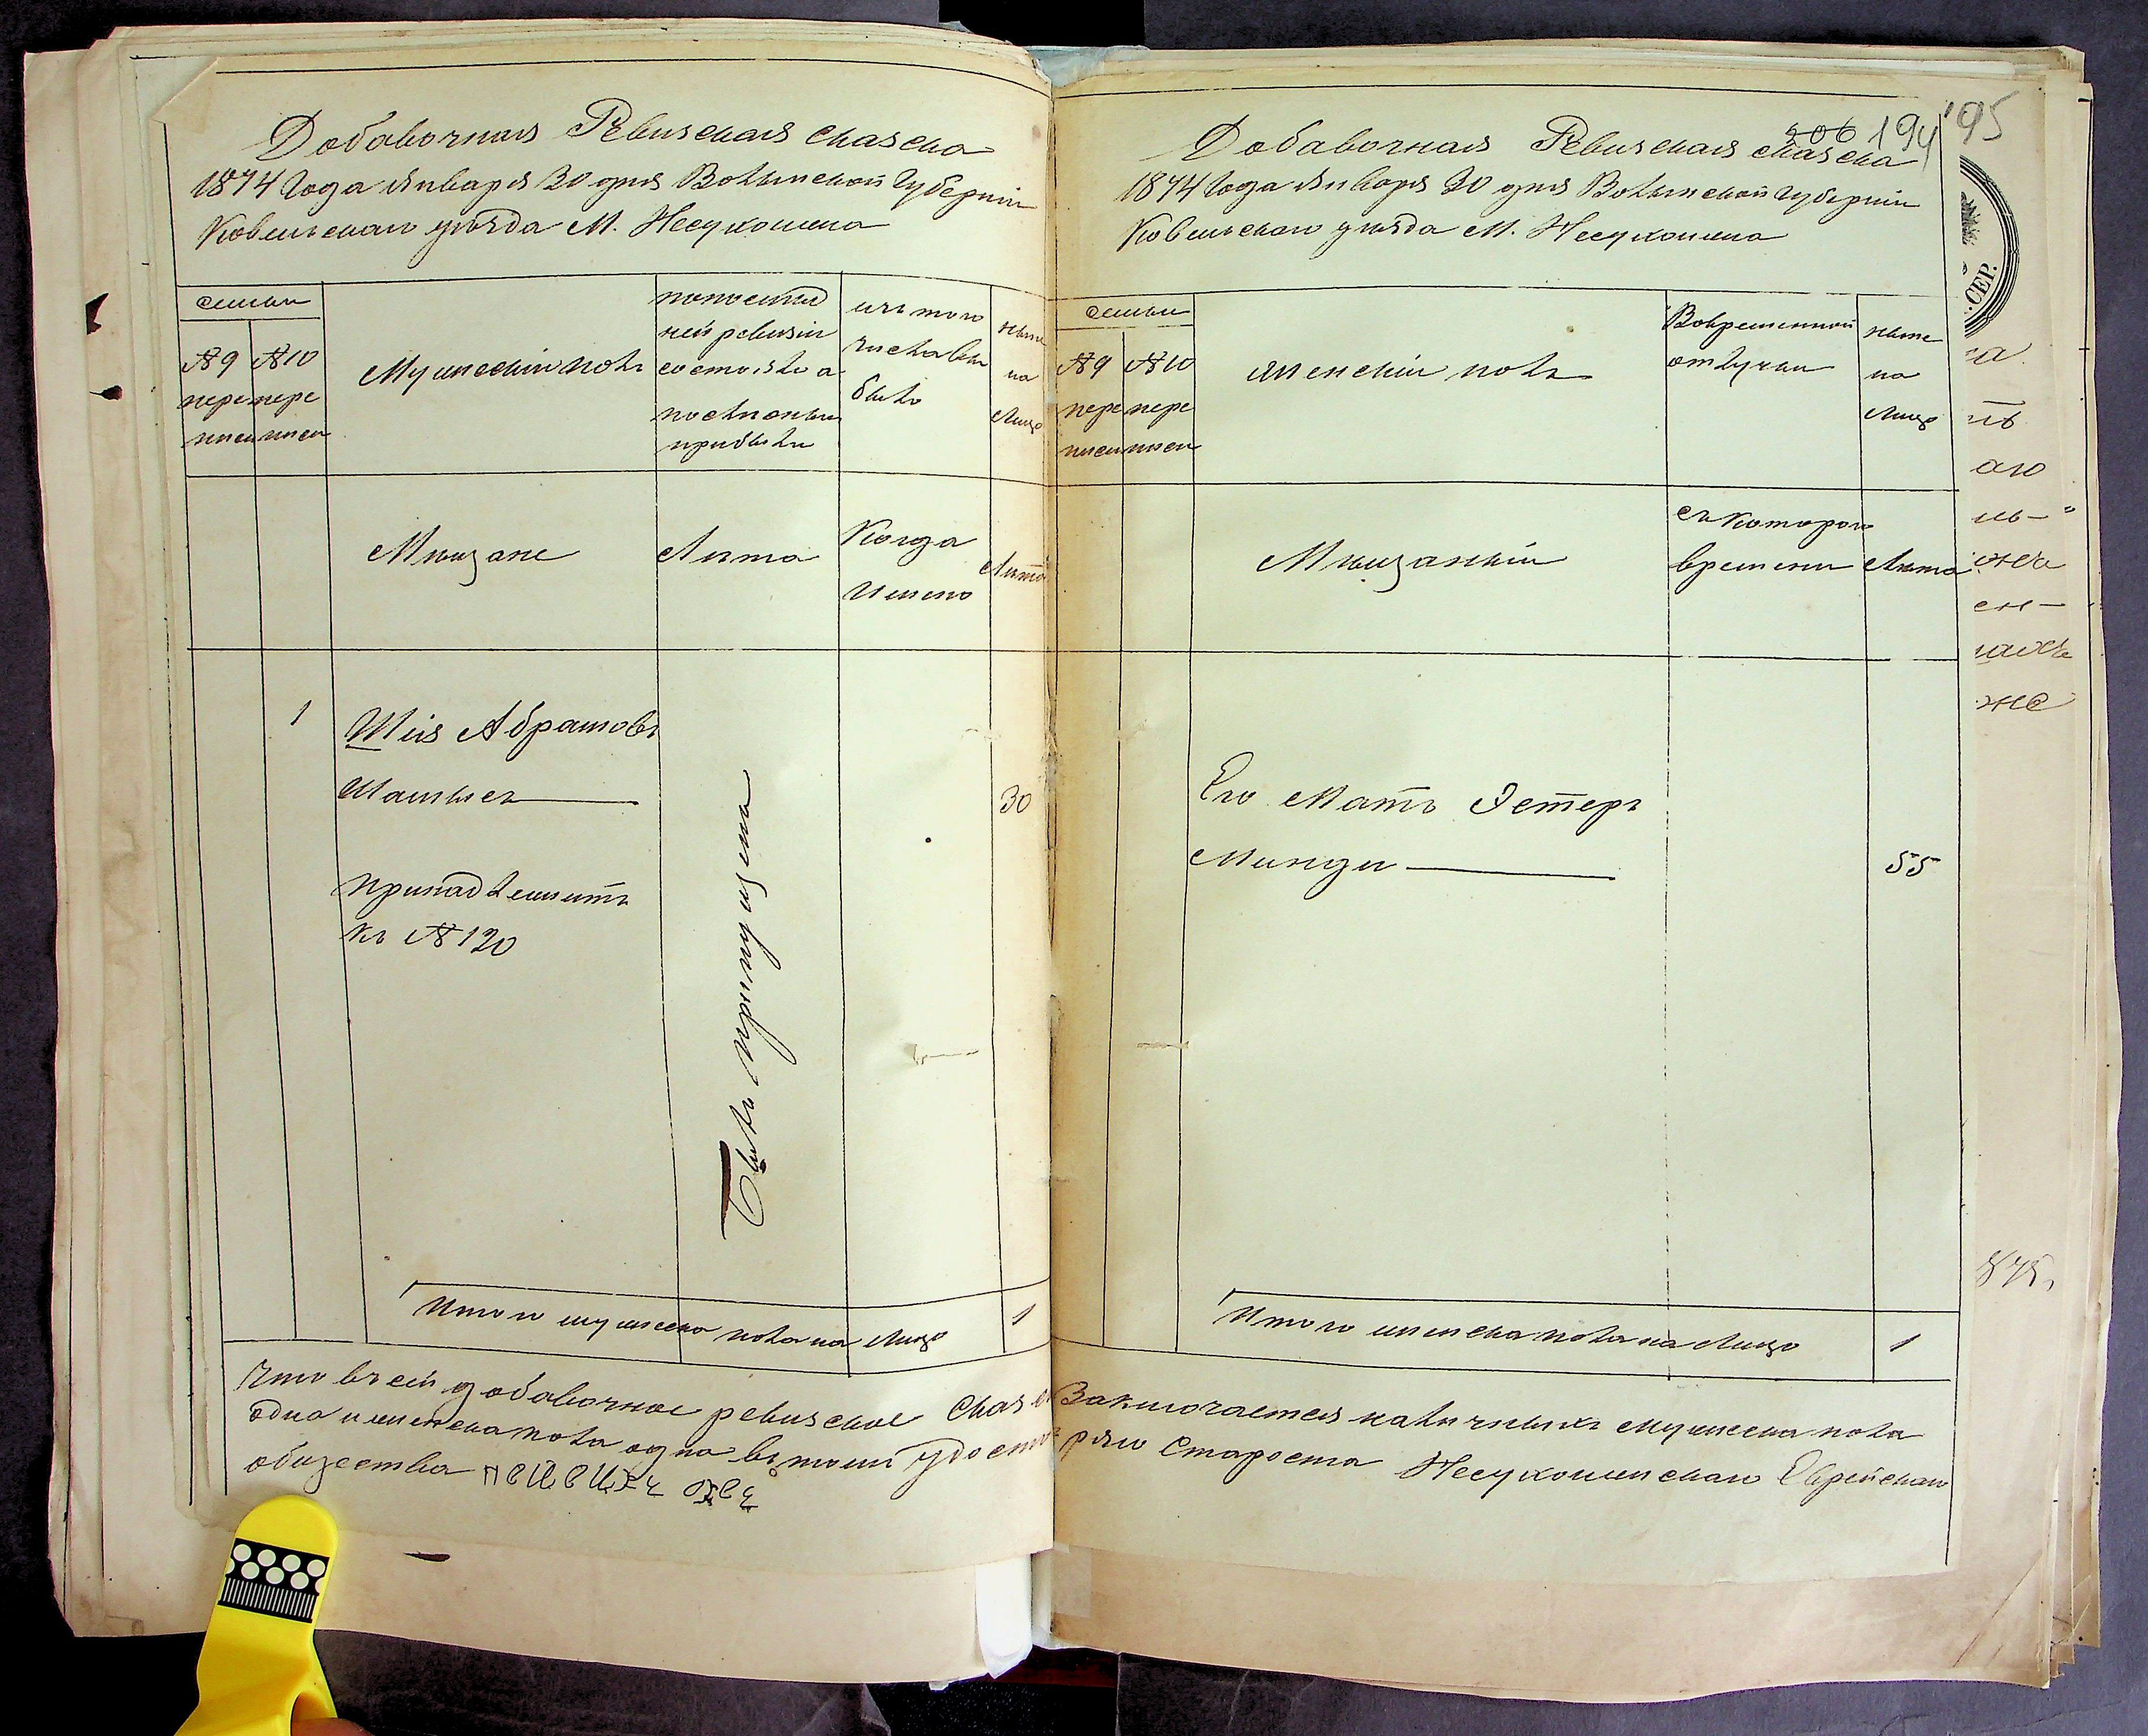 Добавочная Ревизская сказка
1874 года Января 30 дня Волынской губернии
Ковельскаго уѣзда М. Несухоижа
Семьи
№ 9 пере писи
№ 10 пере писи
Мужескій полъ
по послѣд
ней ревизіи
состояло а
послѣ оныя
прибыли
изъ того
числа вы
было
ныне
на
лицо
Мѣщане
Лѣта
Когда
Имено
Лѣта
1
Шія Абрамовъ
30
принадлежитъ
къ № 120
Былъ пропущенъ
Итого мужеска пола на лицо
1
Что въ сей добавочное ревизское Сказ
одна и женска пола одна въ томъ удосто
общества
206 194
195
Добавочная Ревизская сказка
1874 года Января 30 дня Волынской губернии
Ковельскаго уѣзда М. Несухоижа
Семьи
№ 9 пере писи
№ 10 пере писи
Женскій полъ
Вовременной
отлучки
ныне
на
лицо
Мѣщанкіи
съ котораго
времени
Лѣта
Его Мать Эстеръ
Минди
55
Итого женска пола на лицо
1
Заключается наличныхъ мужеска пола
ряю Староста Несухоижскаго Еврейскаго
.СЕР.
аго
же